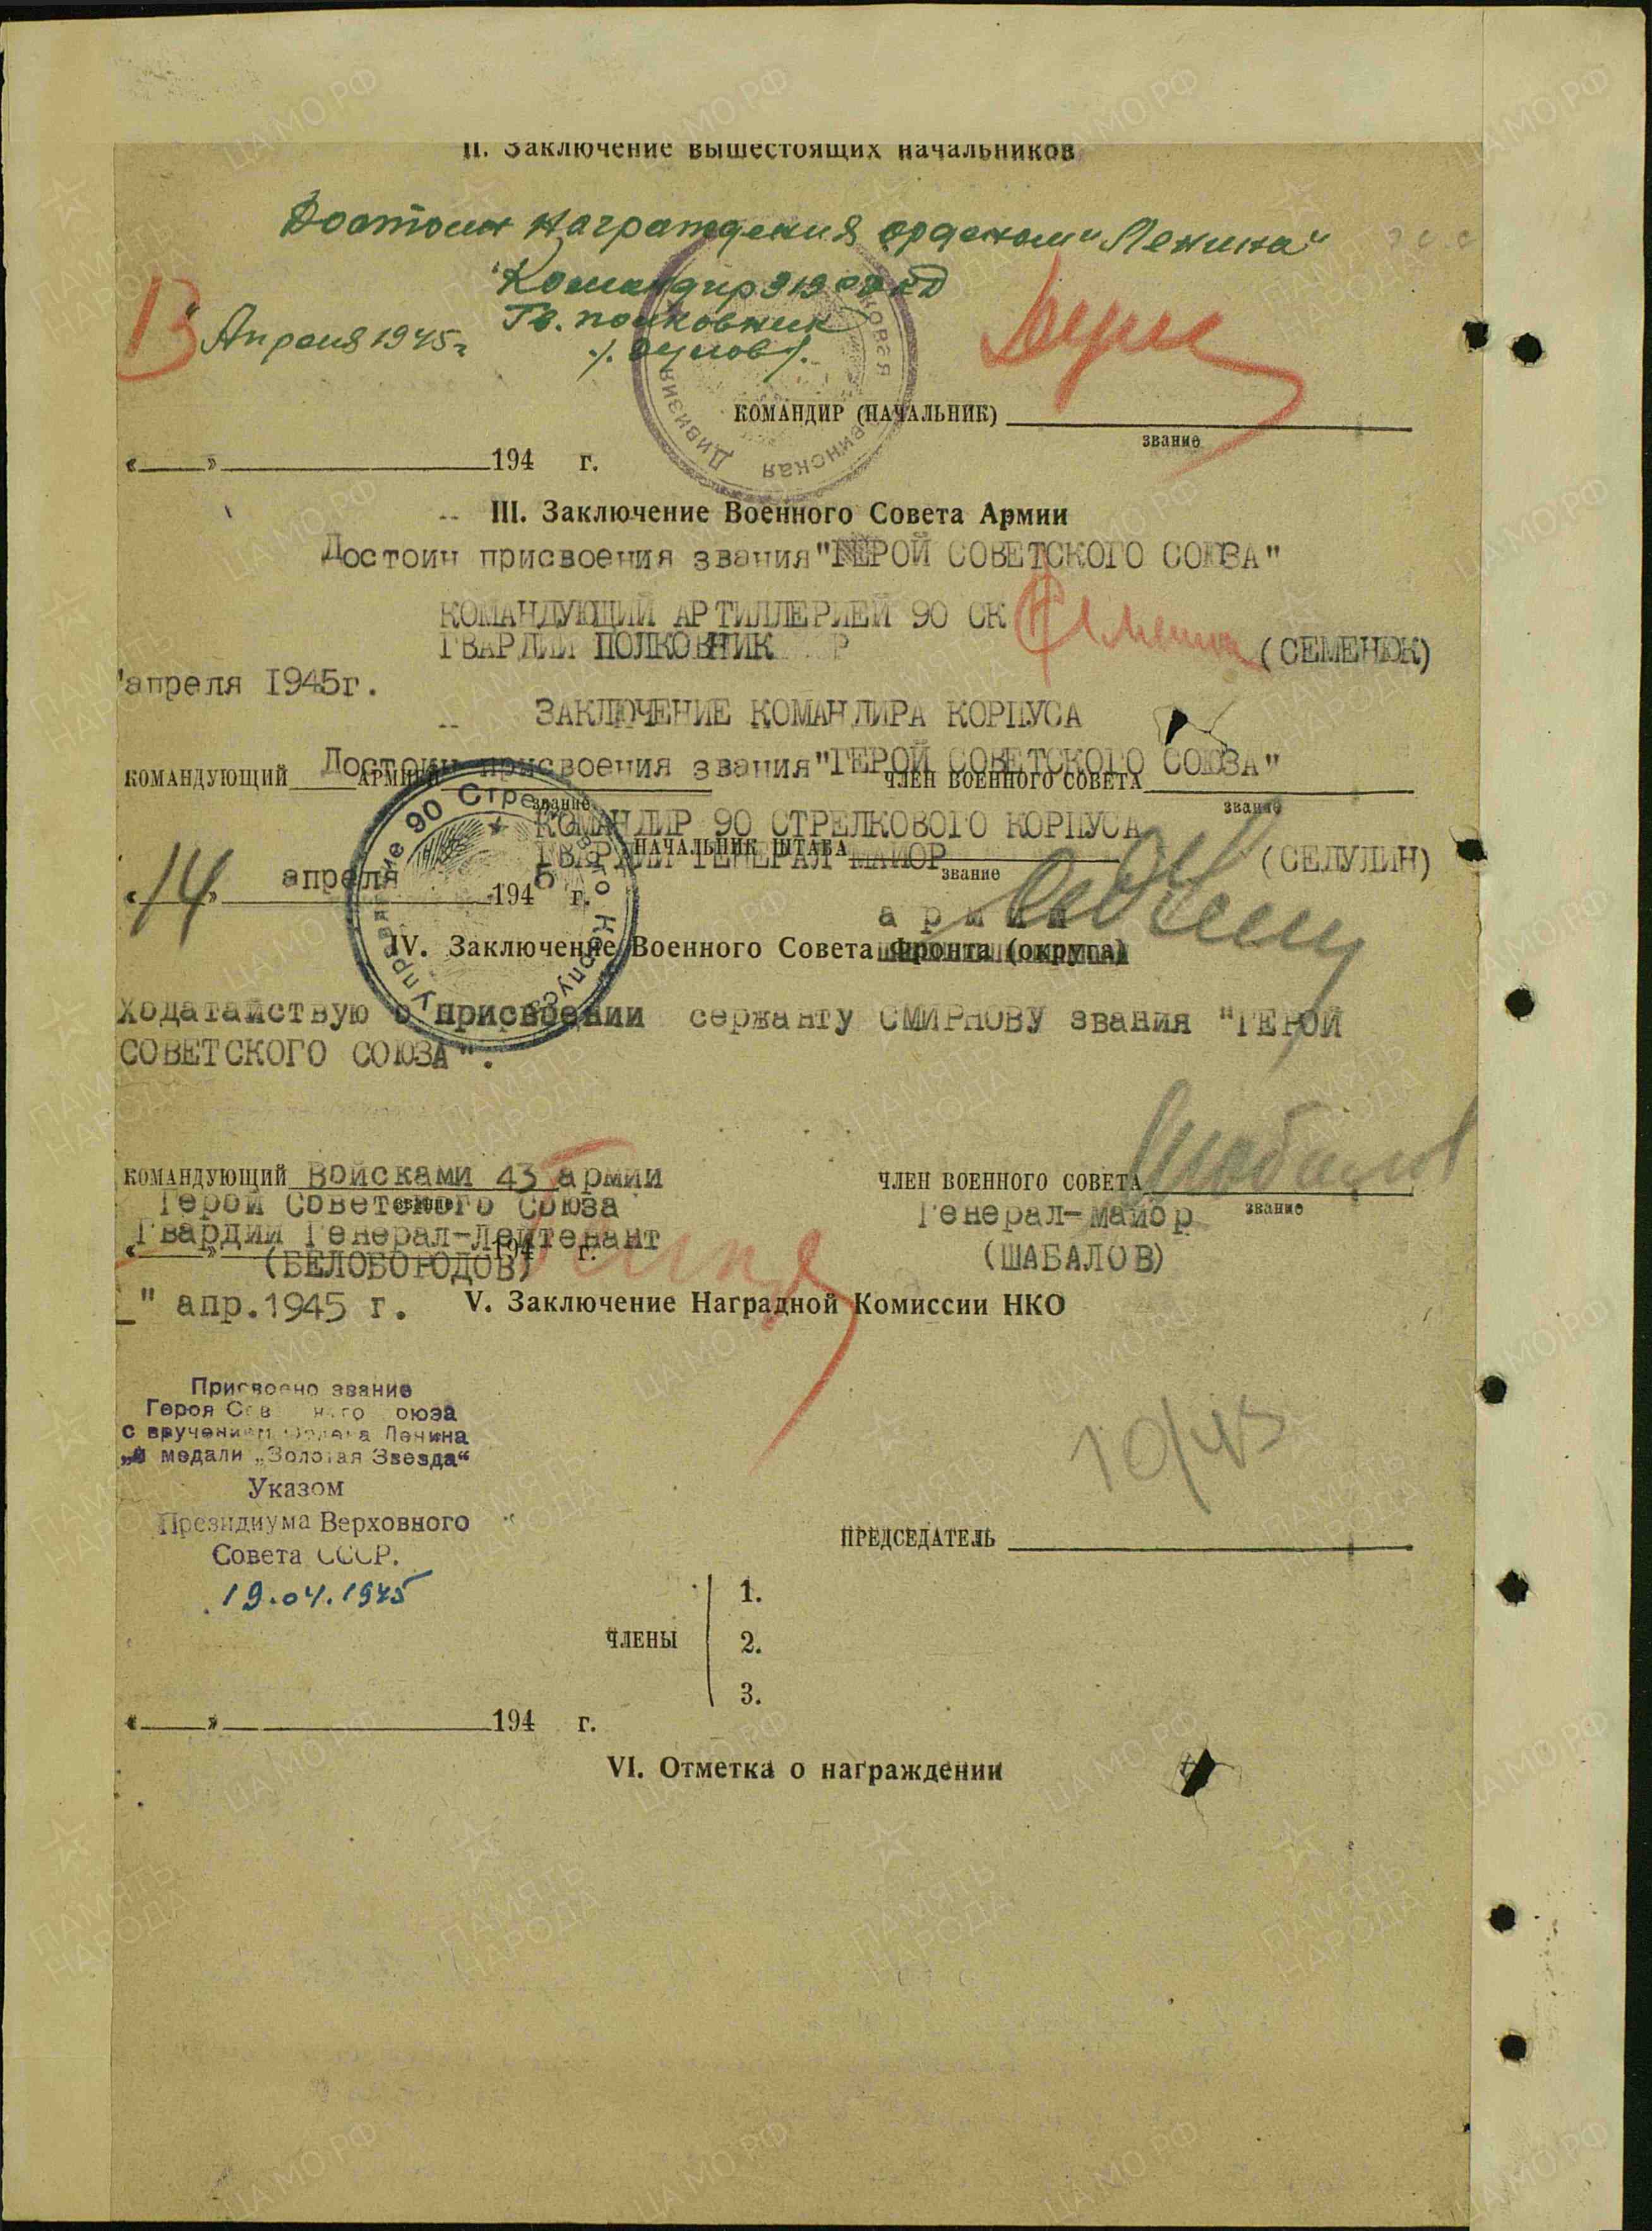 II. Заключение вышестоящих начальников
Достоин награждения орденом "Ленина"
Командир 319 сд
Гв. полковник
13 Апреля 1945 г
КОМАНДИР (НАЧАЛЬНИК)
звание
«   »   194   г.
III. Заключение Военного Совета Армии
Достоин присвоения звания "ГЕРОЙ СОВЕТСКОГО СОЮЗА"
КОМАНДУЮЩИЙ АРТИЛЛЕРИЕЙ 90 СК
ГВАРДИИ ПОЛКОВНИК   (СЕМЕНЮК)
"апреля 1945г.
ЗАКЛЮЧЕНИЕ КОМАНДИРА КОРПУСА
Достоин присвоения звания "ГЕРОЙ СОВЕТСКОГО СОЮЗА"
КОМАНДУЮЩИЙ   АРМИЕЙ   ЧЛЕН ВОЕННОГО СОВЕТА
звание   звание
КОМАНДИР 90 СТРЕЛКОВОГО КОРПУСА
НАЧАЛЬНИК ШТАБА
ГВАРДИИ ГЕНЕРАЛ МАЙОР   (СЕДУЛИН)
звание
«14» апреля 1945 г.
Управление 90 Стрелкового Корпуса
армии
IV. Заключение Военного Совета фронта (округа)
Ходатайствую о присвоении сержанту СМИРНОВУ звания "ГЕРОЙ
СОВЕТСКОГО СОЮЗА".
КОМАНДУЮЩИЙ Войсками 43 армии   ЧЛЕН ВОЕННОГО СОВЕТА Шабалов
Герой Советского Союза   звание
Гвардии Генерал-лейтенант   Генерал-майор
«   »   194   г.
(БЕЛОБОРОДОВ)   (ШАБАЛОВ)
" апр.1945 г.
V. Заключение Наградной Комиссии НКО
Присвоено звание
Героя Советского Союза
с вручением Ордена Ленина
и медали „Золотая Звезда“
Указом
Президиума Верховного
Совета СССР.
19.04.1945
10/43
ПРЕДСЕДАТЕЛЬ
1.
ЧЛЕНЫ   2.
3.
«   »   194   г.
VI. Отметка о награждении
ПАМЯТЬ НАРОДА
ЦАМО.РФ